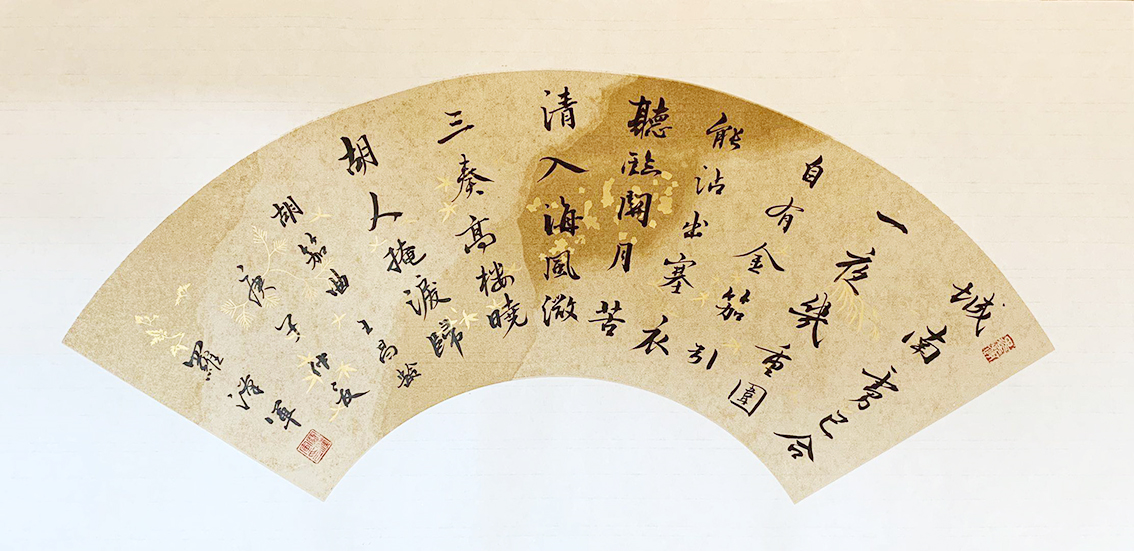 城南虜已合
一夜幾重圍
自有金笳引
能沾出塞衣
聽臨關月苦
清入海風微
三奏高楼曉
胡人掩淚歸
胡笳曲王昌齡
庚子仲夏
羅軍